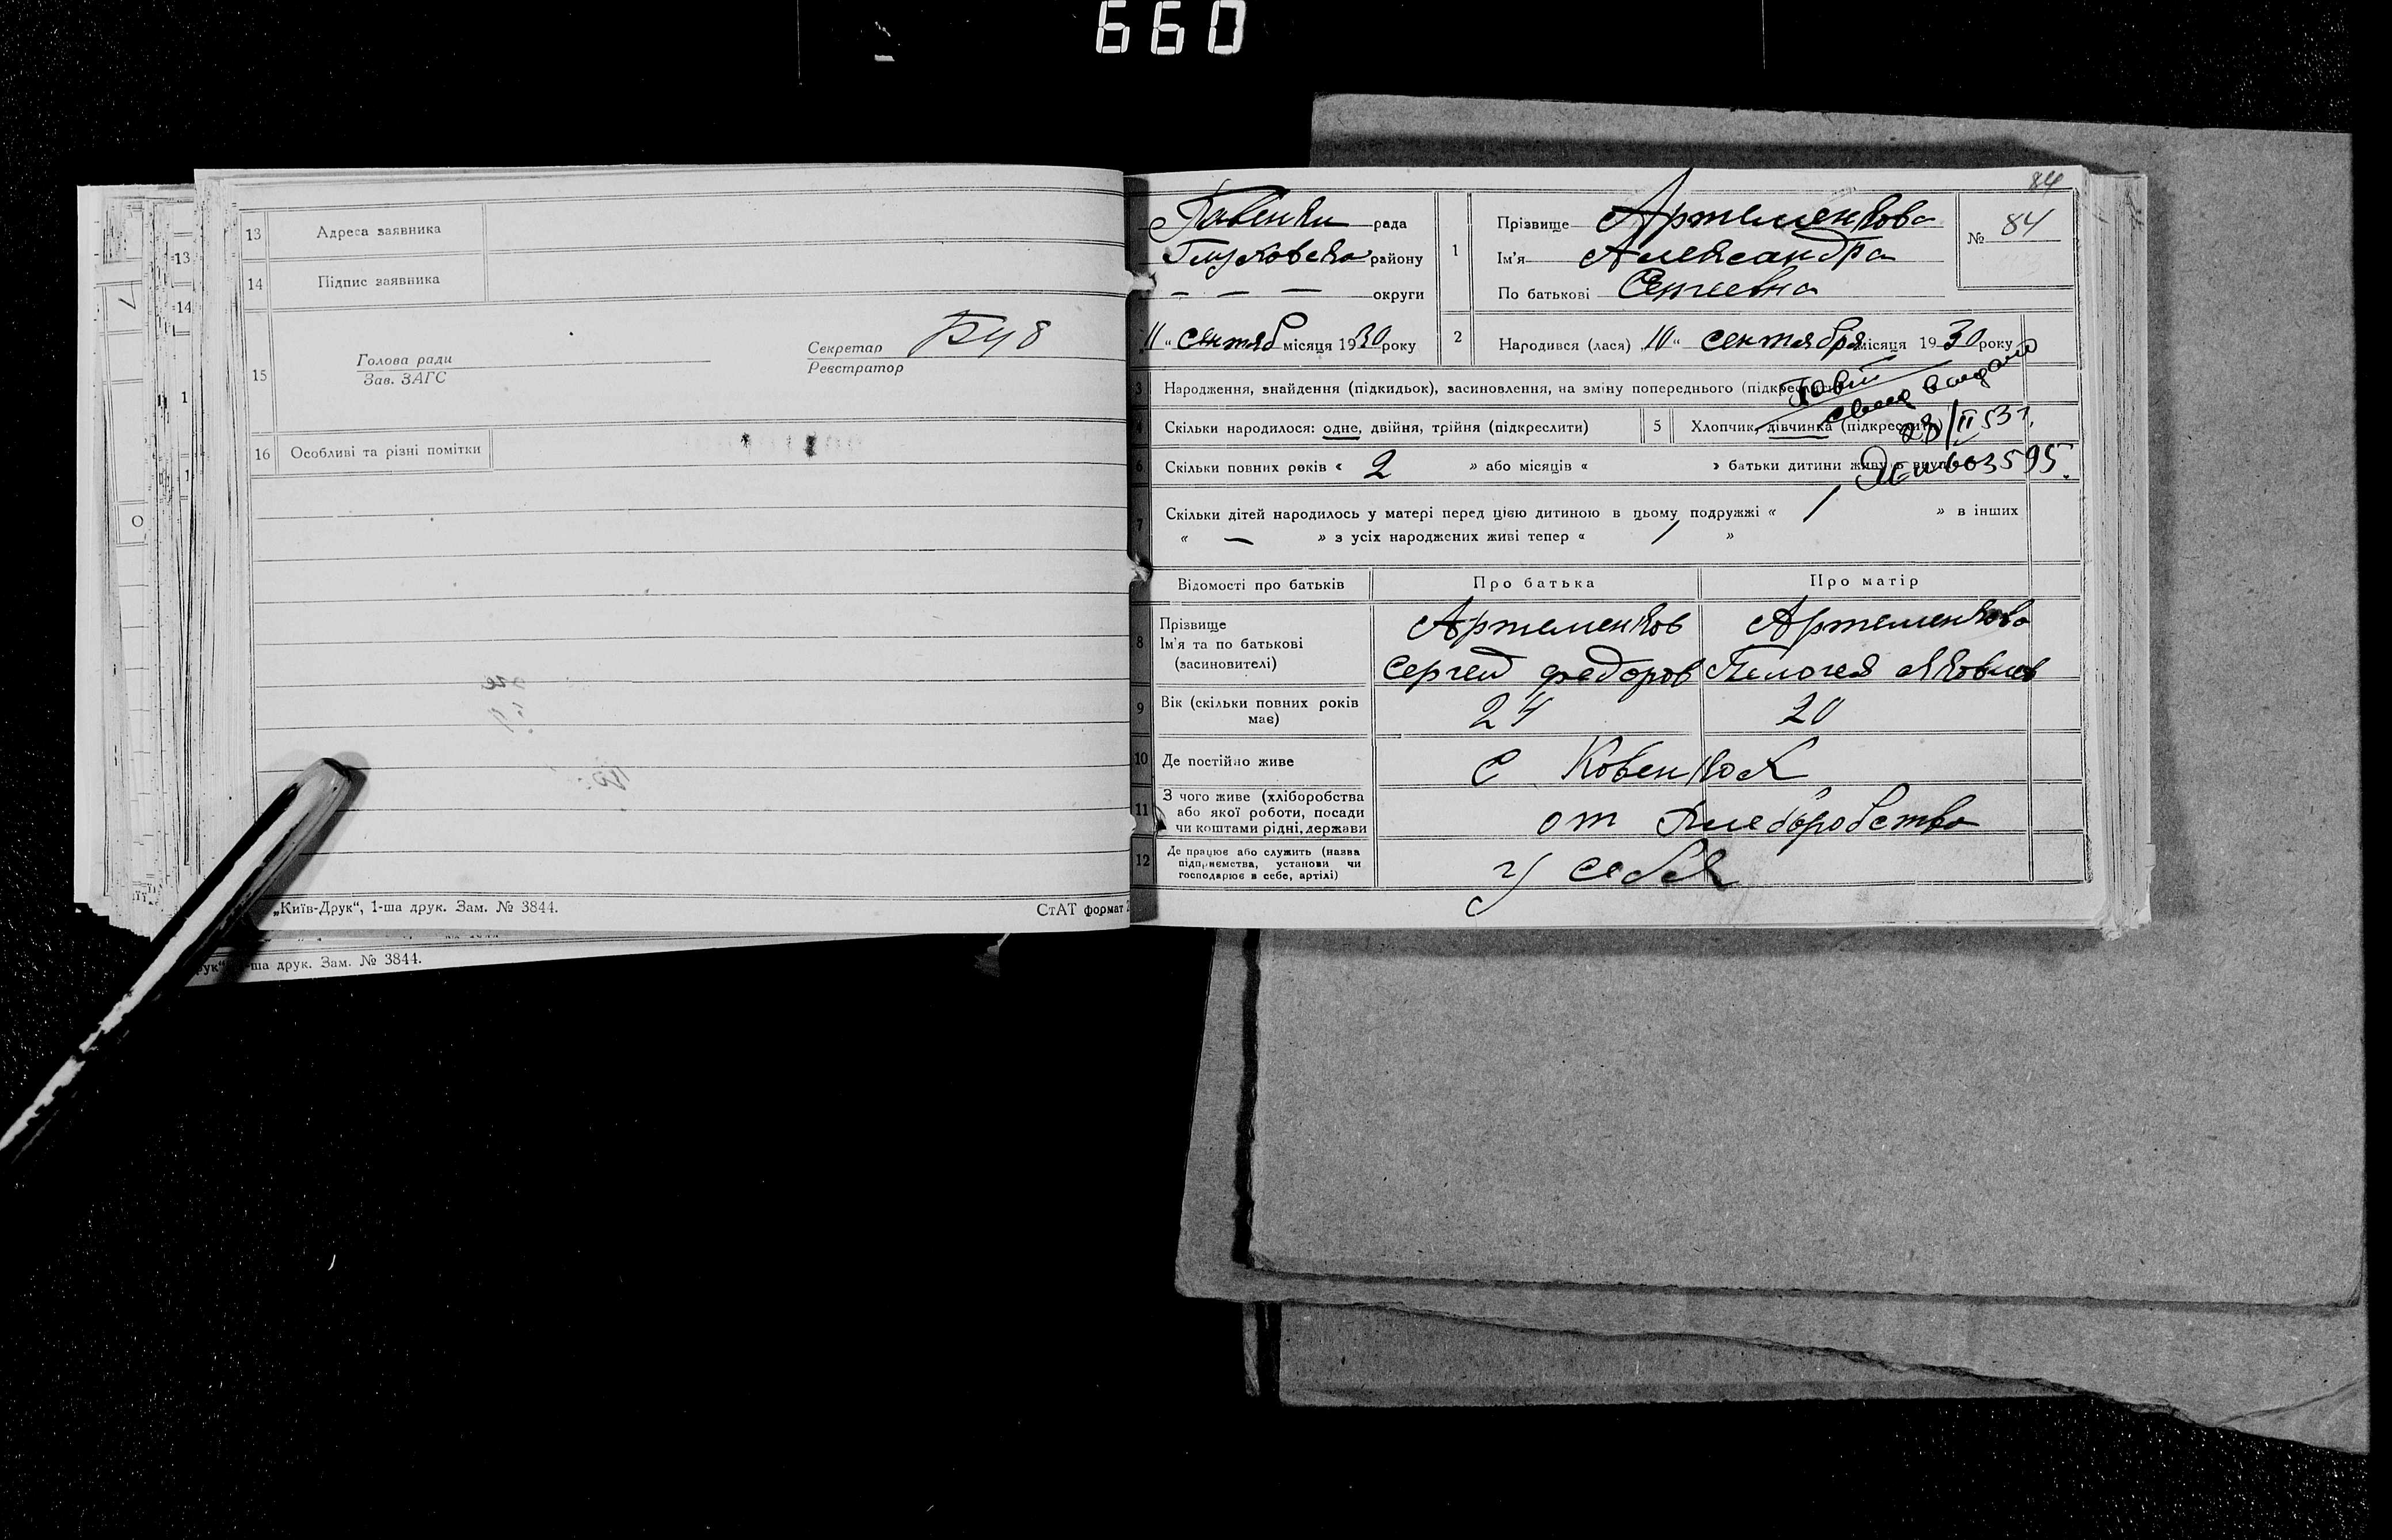 660
13 Адреса заявника
14 Підпис заявника
15 Голова ради
Зав. ЗАГС
Секретар
Реєстратор
16 Особливі та різні помітки
„Київ-Друк“, 1-ша друк. Зам. № 3844.
СтАТ формат
-ша друк. Зам. № 3844.
84
рада
району
— — — округи
„11“ сентяб місяця 1930 року
1 Прізвище Артеменкова
Ім'я Александра
По батькові Сергеевна
№ 84
2 Народився (лася) „10“ сентября місяця 1930 року
3 Народження, знайдення (підкидьок), засиновлення, на зміну попереднього
4 Скільки народилося: одне, двійня, трійня (підкреслити)
5 Хлопчик, дівчинка (підкреслити)
28/II 53 г.
603595.
6 Скільки повних років « 2 » або місяців « » батьки дитини живуть
7 Скільки дітей народилось у матері перед цією дитиною в цьому подружжі « 1 » в інших
« — » з усіх народжених живі тепер « 1 »
Відомості про батьків Про батька Про матір
8 Прізвище
Ім'я та по батькові
(засиновителі)
Артеменков Артеменкова
Сергей Федоров Пелогея Яковлев
9 Вік (скільки повних років
має)
24 20
10 Де постійно живе
с Ковенках
11 З чого живе (хліборобства
або якої роботи, посади
чи коштами рідні, держави
от хлеборобства
12 Де працює або служить (назва
підприємства, установи чи
господарює в себе, артілі)
у себя